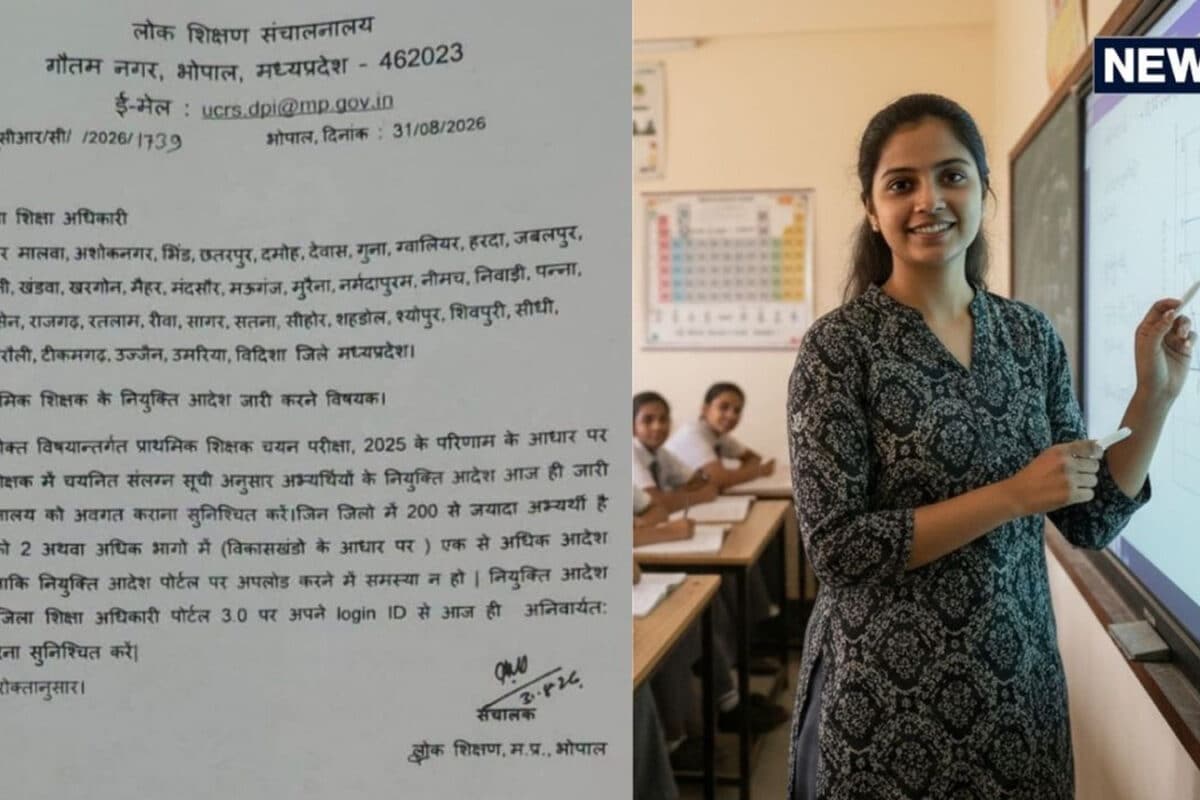 लोक शिक्षण संचालनालय
गौतम नगर, भोपाल, मध्यप्रदेश - 462023
ई-मेल : ucrs.dpi@mp.gov.in
सीआर/सी/ /2026/1739 भोपाल, दिनांक : 31/08/2026
शिक्षा अधिकारी
मालवा, अशोकनगर, भिंड, छतरपुर, दमोह, देवास, गुना, ग्वालियर, हरदा, जबलपुर,
खंडवा, खरगोन, मैहर, मंदसौर, मऊगंज, मुरैना, नर्मदापुरम, नीमच, निवाड़ी, पन्ना,
राजगढ़, रतलाम, रीवा, सागर, सतना, सीहोर, शहडोल, श्योपुर, शिवपुरी, सीधी,
रौली, टीकमगढ़, उज्जैन, उमरिया, विदिशा जिले मध्यप्रदेश।
मिक शिक्षक के नियुक्ति आदेश जारी करने विषयक।
विषयान्तर्गत प्राथमिक शिक्षक चयन परीक्षा, 2025 के परिणाम के आधार पर
में चयनित संलग्न सूची अनुसार अभ्यर्थियों के नियुक्ति आदेश आज ही जारी
नालय को अवगत कराना सुनिश्चित करें।जिन जिलो में 200 से जयादा अभ्यर्थी है
2 अथवा अधिक भागो में (विकासखंडो के आधार पर ) एक से अधिक आदेश
ताकि नियुक्ति आदेश पोर्टल पर अपलोड करने में समस्या न हो | नियुक्ति आदेश
जिला शिक्षा अधिकारी पोर्टल 3.0 पर अपने login ID से आज ही अनिवार्यत:
सुनिश्चित करें|
क्तानुसार।
संचालक
लोक शिक्षण, म.प्र., भोपाल
NEW